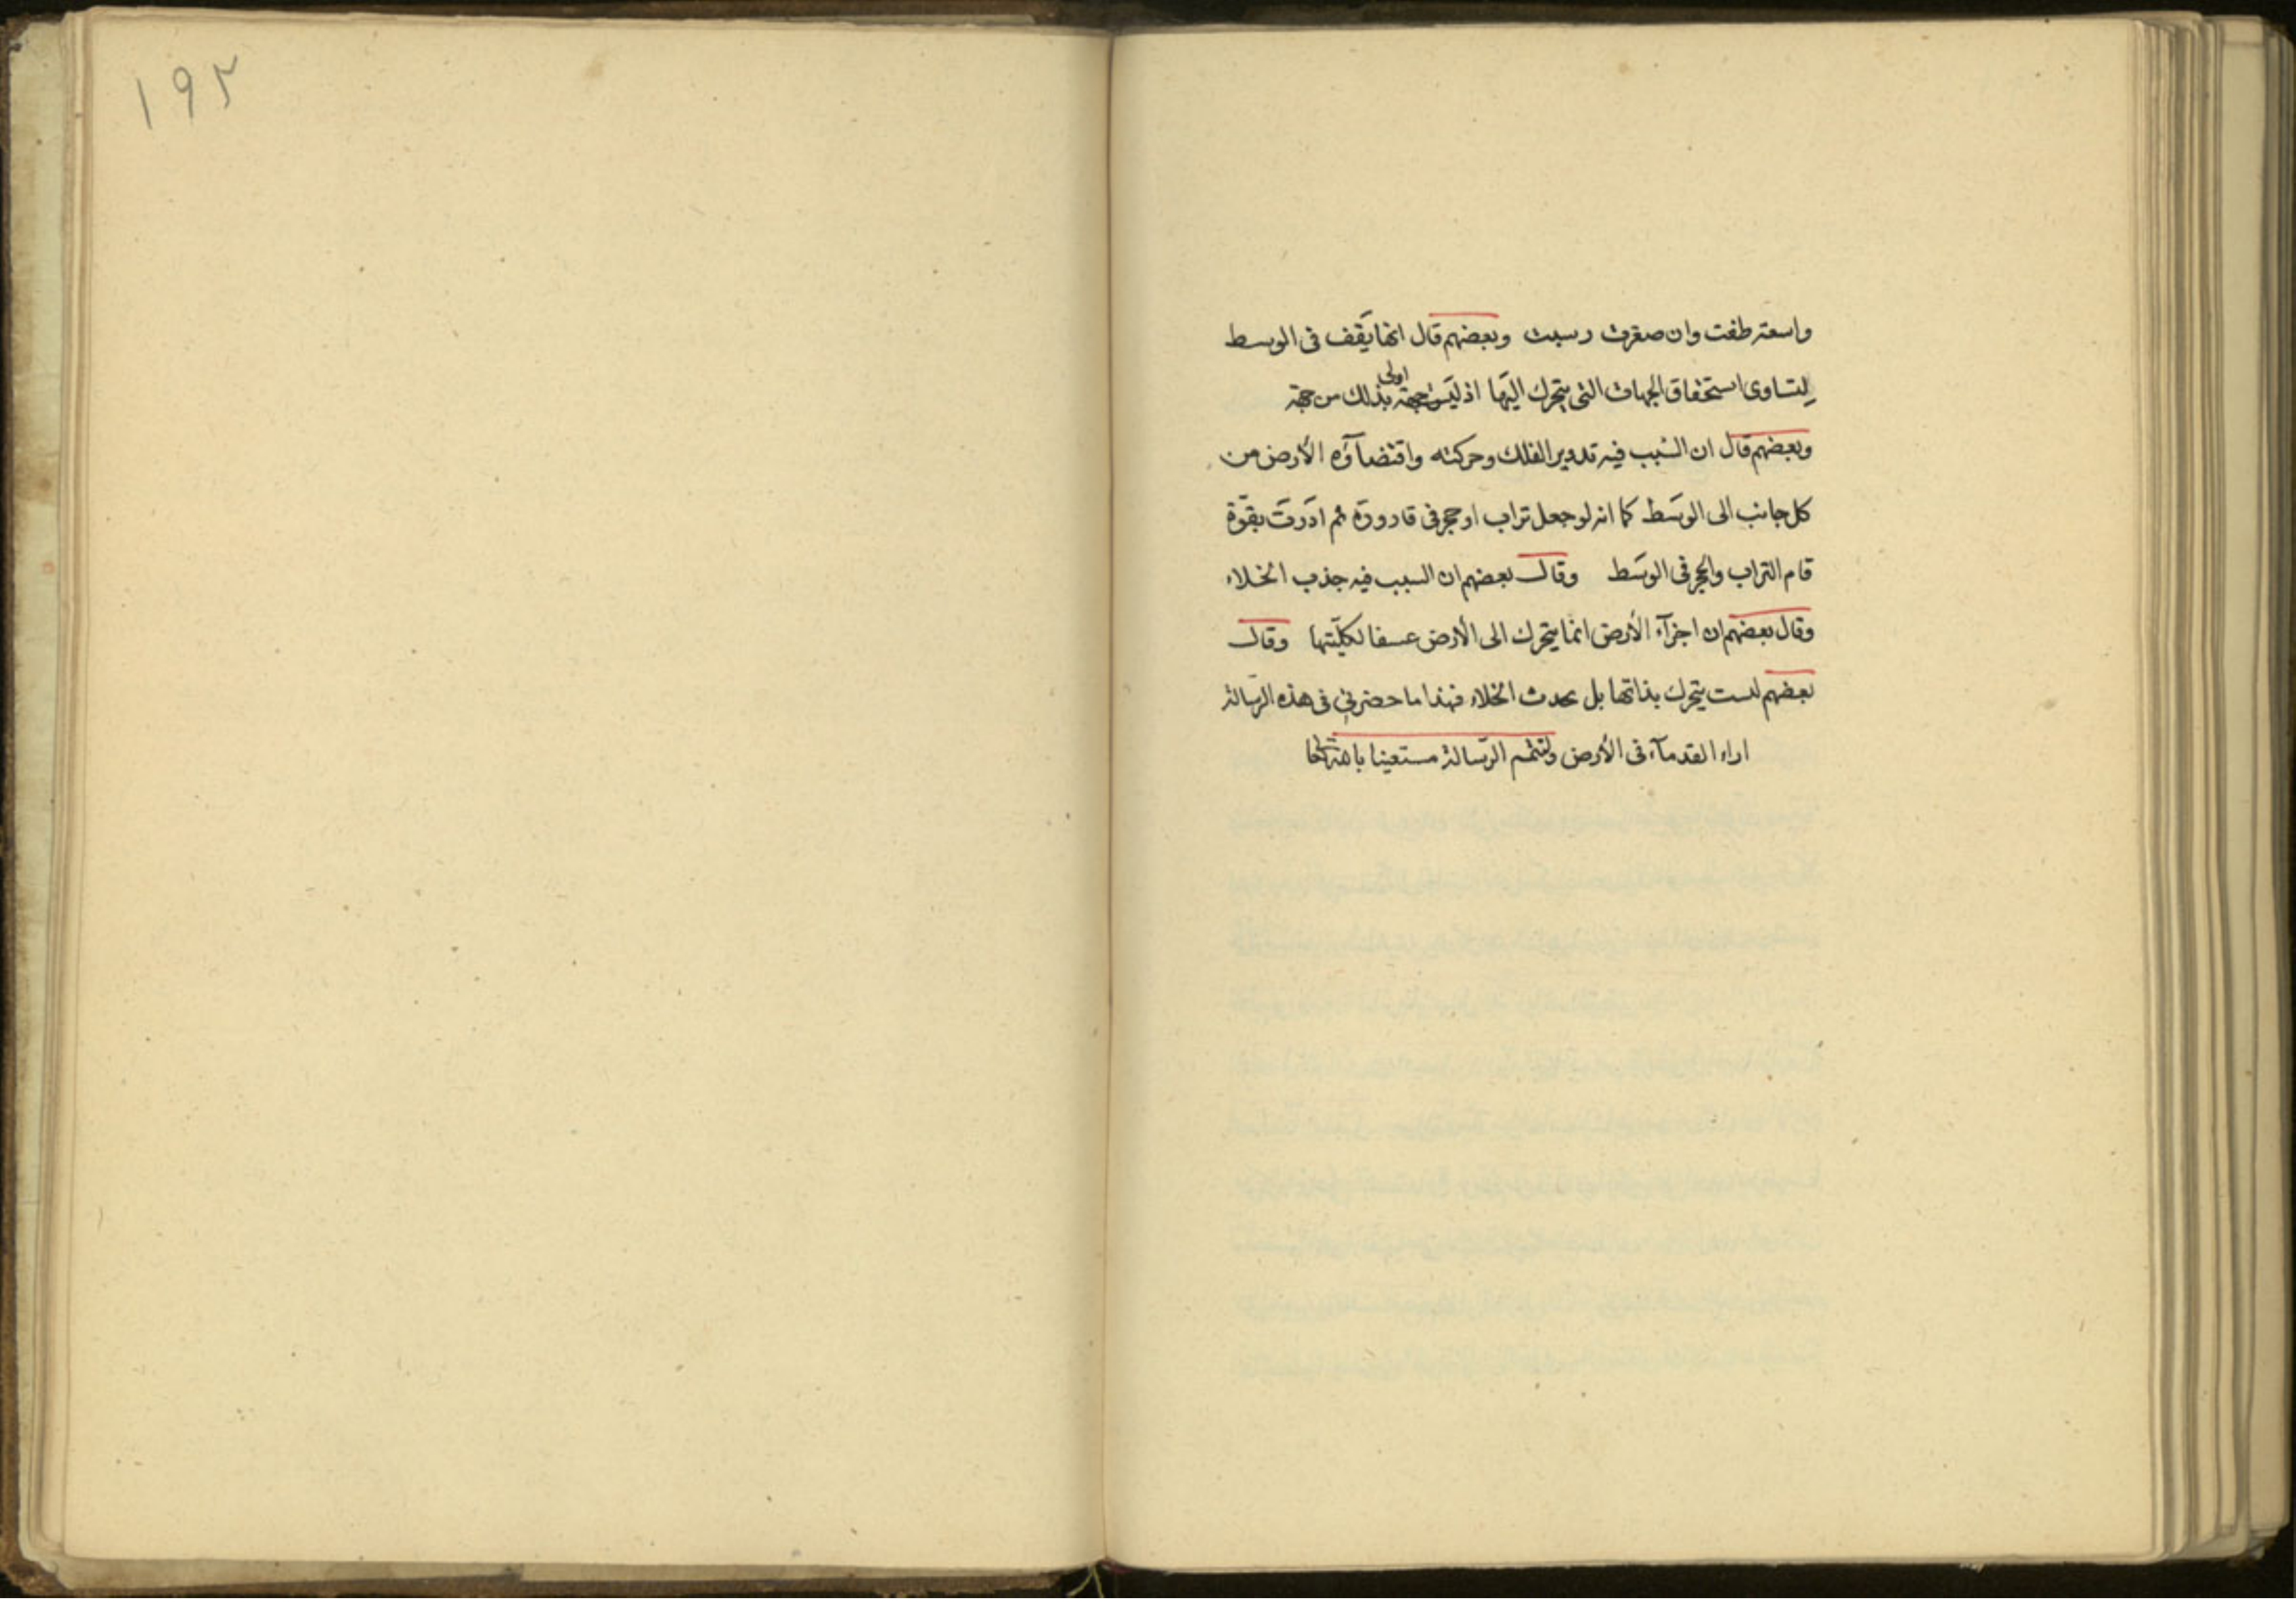 واسعة طفت وان صغرت رسبت وبعضهم قال انها يقف فى الوسط
لتساوى استحقاق الجهات التى يتحرك اليها اذ ليس جهة اولى بذلك من جهة
وبعضهم قال ان السبب فيه تدوير الفلك وحركته واقتضآؤه الأرض من
كل جانب الى الوسط كما انه لو جعل تراب او حجر فى قارورة ثم ادرت بقوّة
قام التراب والحجر فى الوسط وقال بعضهم ان السبب فيه جذب الخلاء
وقال بعضهم ان اجزآء الأرض انما يتحرك الى الأرض عسفا لكلّيتها وقال
بعضهم لست يتحرك بذاتها بل يحدث الخلاء فهذا ما حضرنى فى هذه الرسالة
اراء القدمآء فى الأرض ولنتمم الرسالة مستعينا بالله
١٩٢